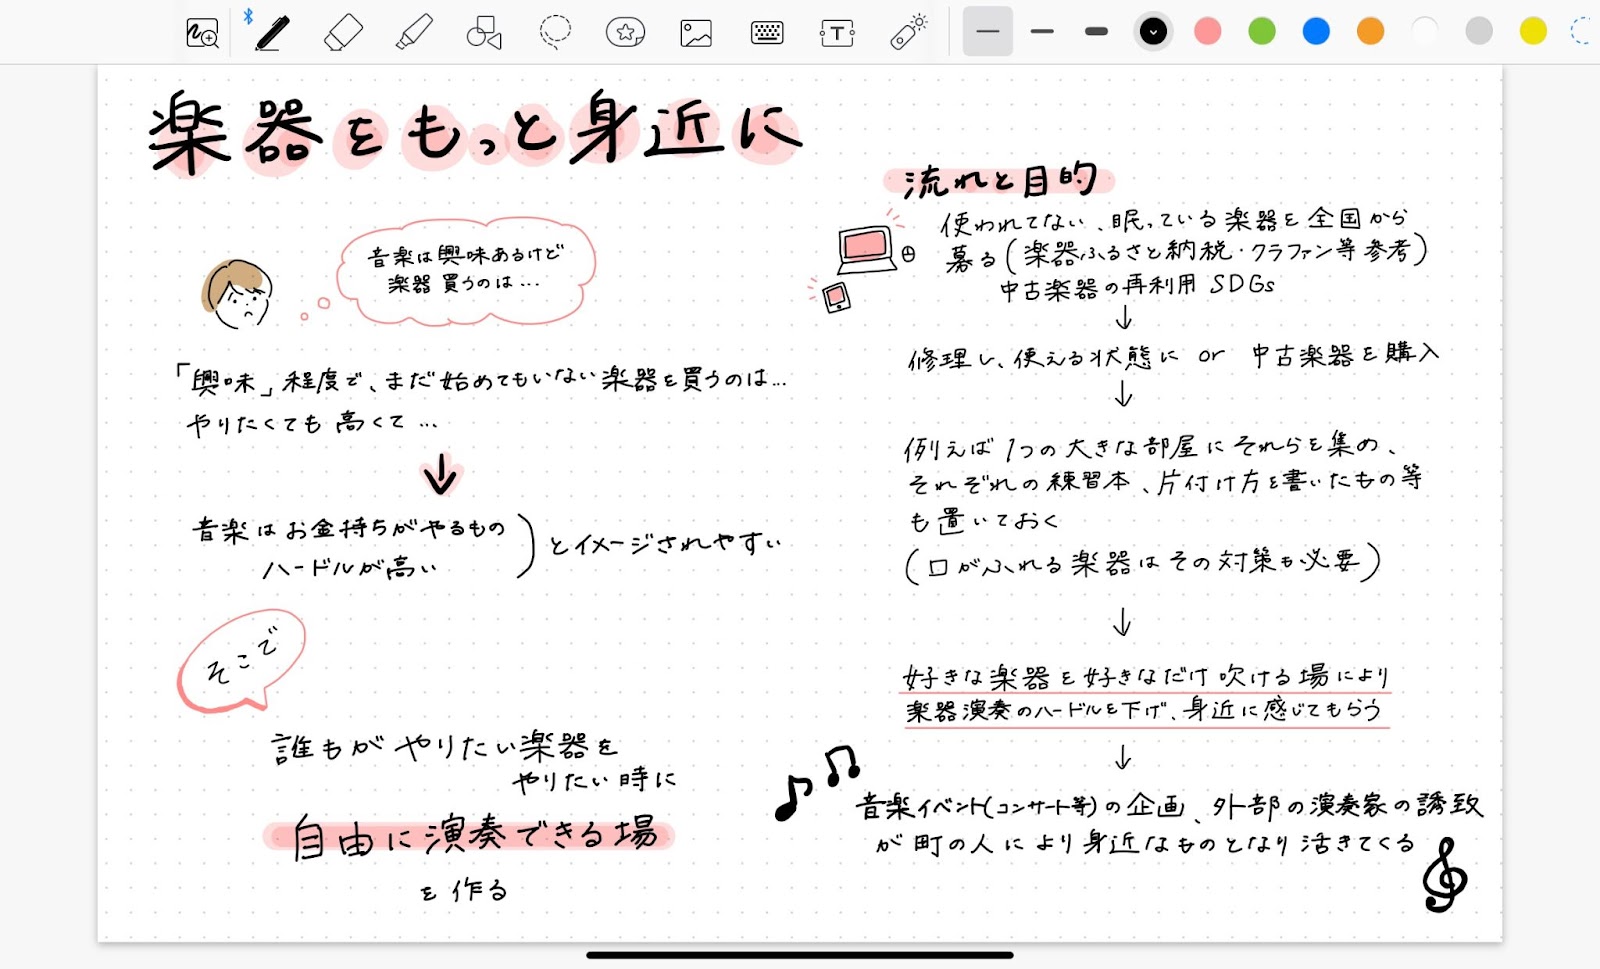 楽器をもっと身近に
音楽は興味あるけど
楽器買うのは…
「興味」程度で、まだ始めてもいない楽器を買うのは…
やりたくても高くて…
↓
音楽はお金持ちがやるもの
ハードルが高い
)とイメージされやすい
そこで
誰もがやりたい楽器を
やりたい時に
自由に演奏できる場
を作る
流れと目的
使われてない、眠っている楽器を全国から
募る(楽器ふるさと納税・クラファン等参考)
中古楽器の再利用 SDGs
↓
修理し、使える状態に or 中古楽器を購入
↓
例えば1つの大きな部屋にそれらを集め、
それぞれの練習本、片付け方を書いたもの等
も置いておく
(口がふれる楽器はその対策も必要)
↓
好きな楽器を好きなだけ吹ける場により
楽器演奏のハードルを下げ、身近に感じてもらう
↓
音楽イベント(コンサート等)の企画、外部の演奏家の誘致
が町の人により身近なものとなり活きてくる